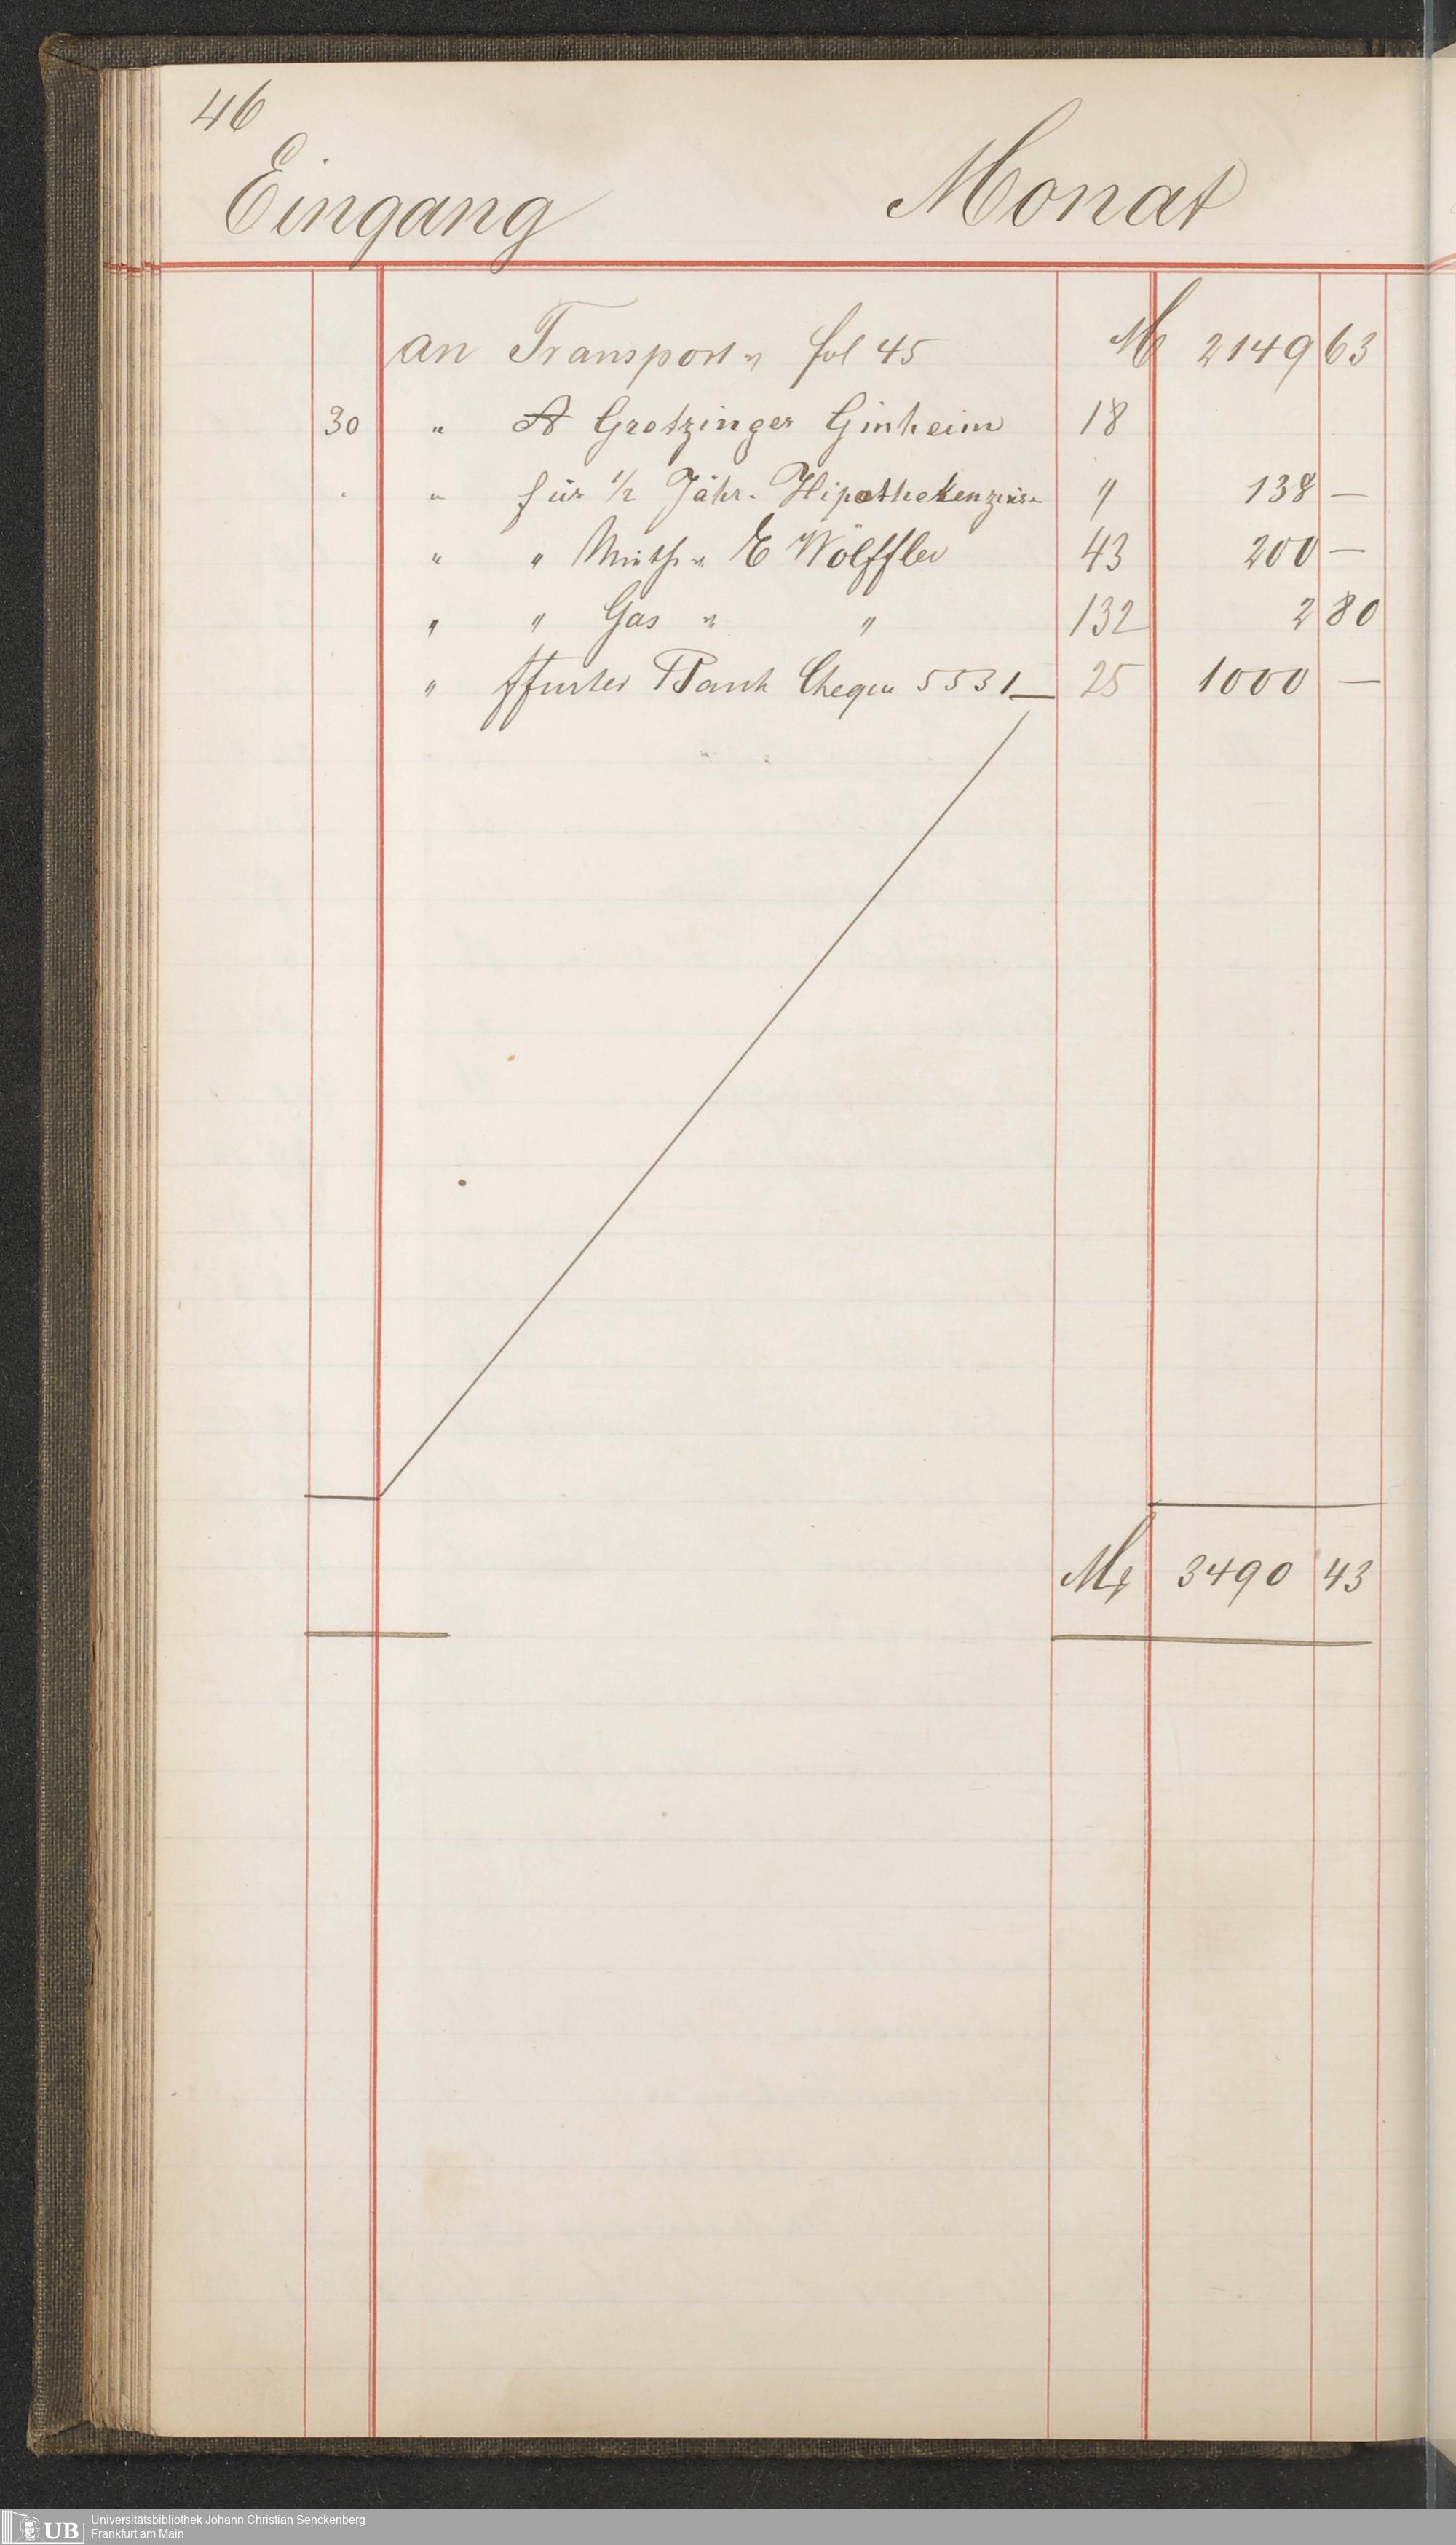 46
Eingang Monat
an Transport v fol 45 M 2149 63
30 " A Gretzinger Ginheim 18
" " für 1/2 Jähr. Hipothekenzins " 138 —
" " Mieth v. E Wölffler 43 200 —
" " Gas v. " 132 2 80
" ffurter Bank Cheque 5531 25 1000 —
M 3490 43
UB Universitätsbibliothek Johann Christian Senckenberg
Frankfurt am Main